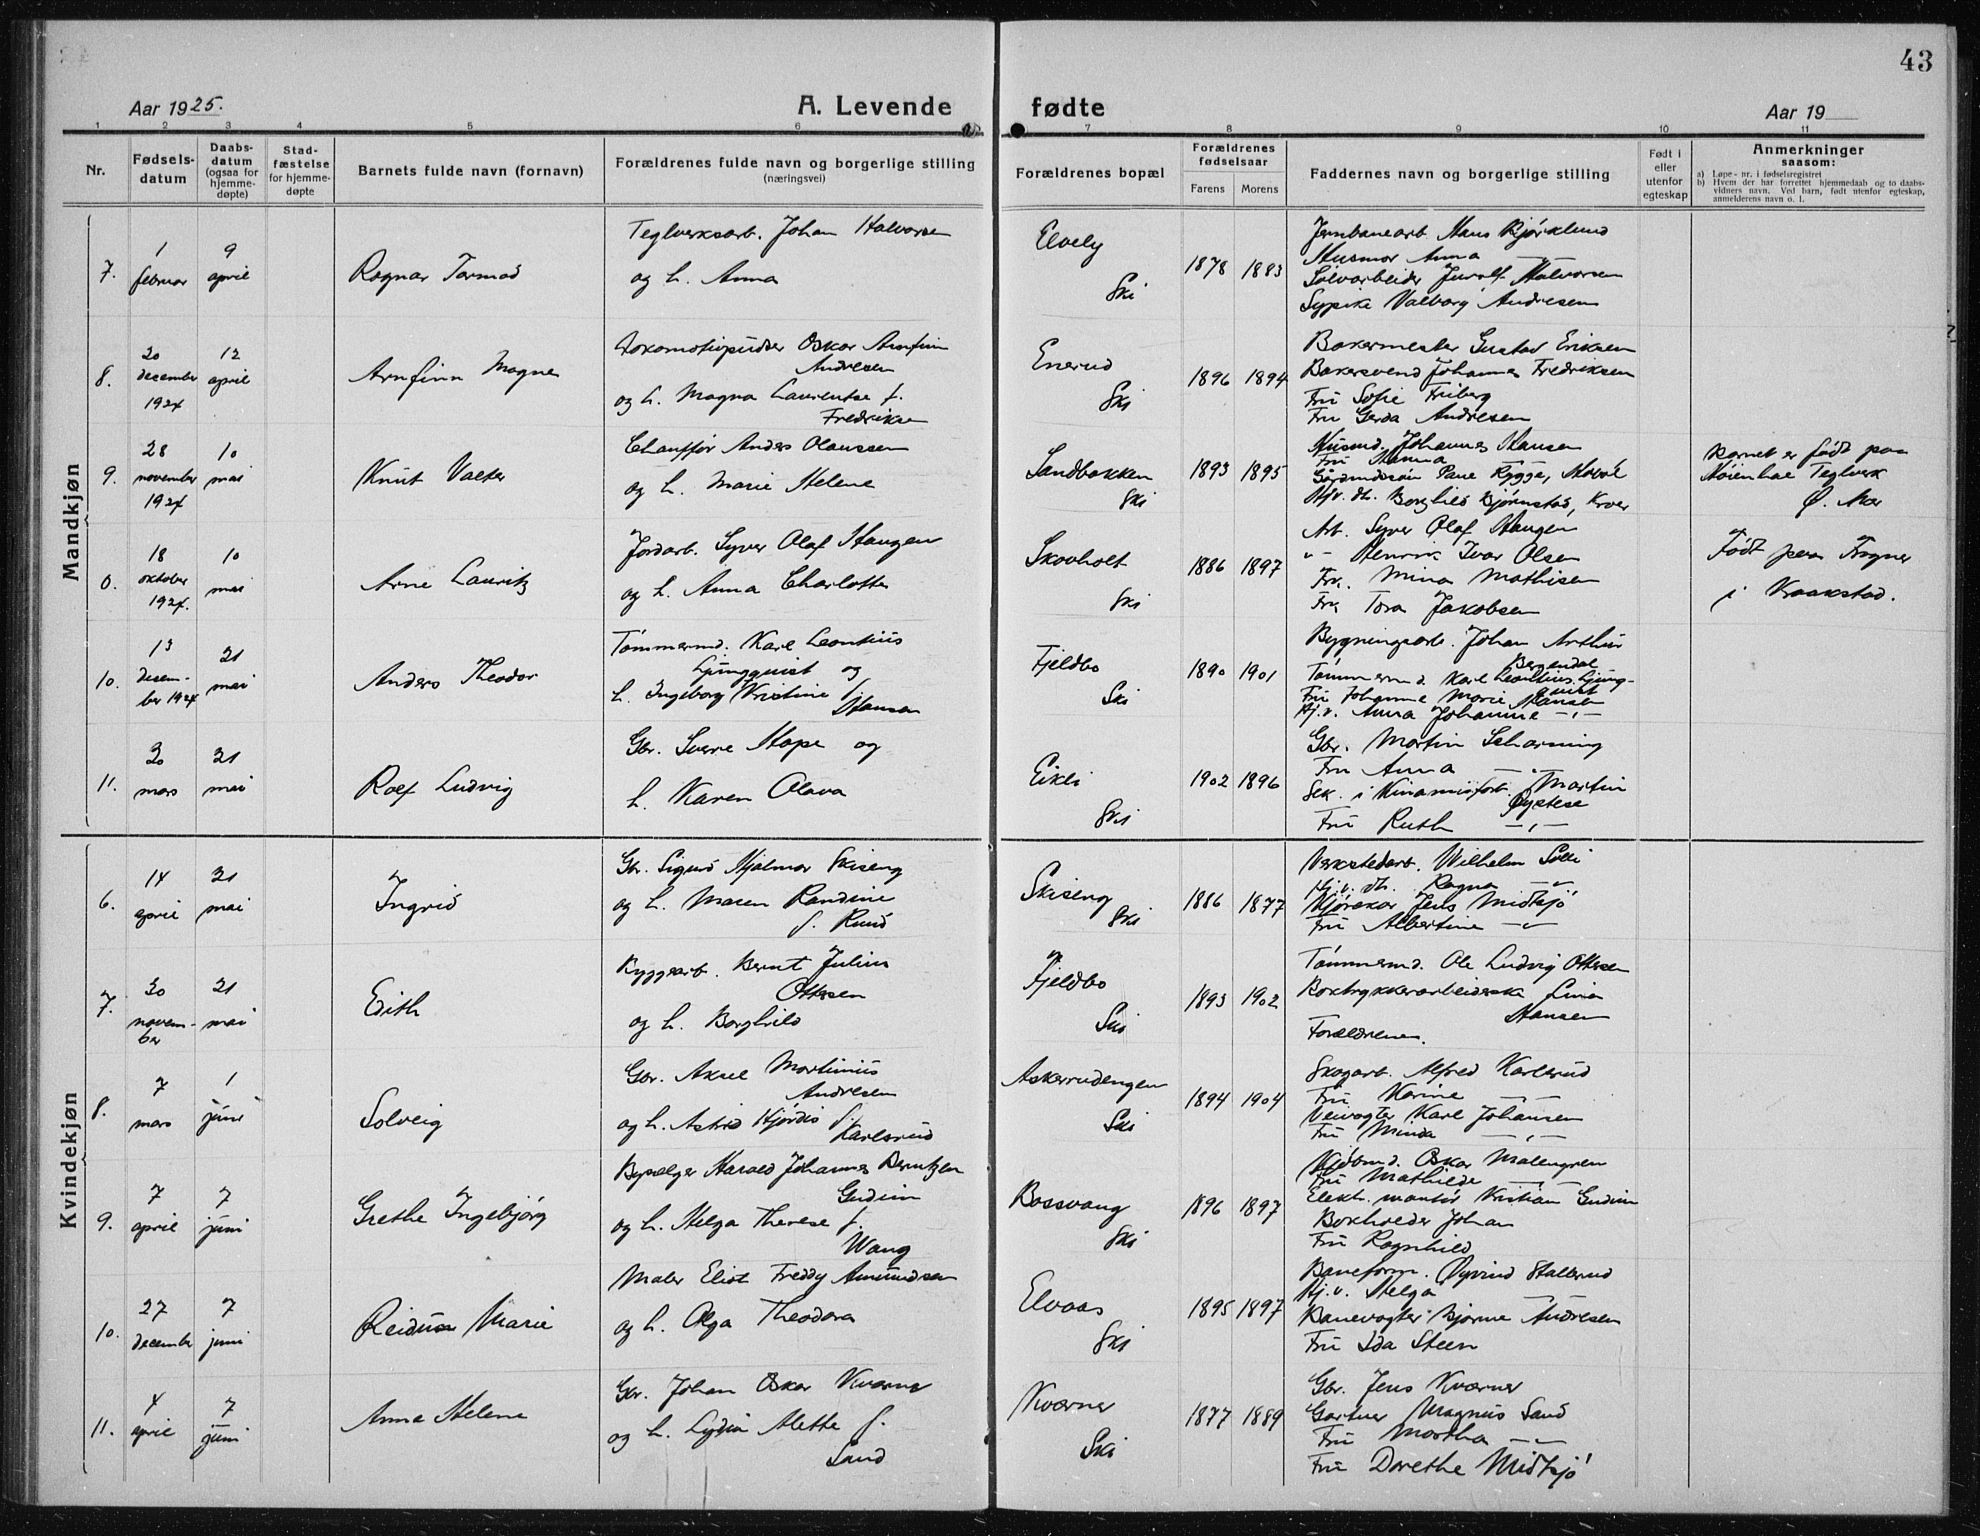 43
Aar 1925.
A. Levende fødte
Aar 19
1 2 3 4 5 6 7 8 9 10 11
Nr.
Fødsels-
datum
Daabs-
datum
(ogsaa for
hjemme-
døpte)
Stad-
fæstelse
for hjemme-
døpte
Barnets fulde navn (fornavn)
Forældrenes fulde navn og borgerlige stilling
(næringsvei)
Forældrenes bopæl
Forældrenes
fødselsaar
Farens Morens
Faddernes navn og borgerlige stilling
Født i
eller
utenfor
egteskap
Anmerkninger
saasom:
a) Løpe-nr. i fødselsregistret
b) Hvem der har forrettet hjemmedaab og to daabs-
vidners navn. Ved barn, født utenfor egteskap,
anmelderens navn o. l.
Mandkjøn
7.
1
februar
9
april
Ragnar Tormod
Teglverksarb. Johan Halvorsen
og h. Anna
Elvely
Ski
1878 1883
Jernbanearb. Hans Bjørklund
Husmor Anna —
Sølvarbeider Halvorsen
Sypike Valborg Andresen
8.
20
december
1924
12
april
Arnfinn Magne
Lokomotivpudser Oskar Arnfinn
Andresen
og h. Magna Laurentse f.
Fredriksen
Enerud
Ski
1896 1894
Bakermester Gustav Eriksen
Bakersvend Johannes Fredriksen
Fru Sofie Friberg
Fru Gerda Andresen
9.
28
november
1924
10
mai
Knut Valter
Chauffør Anders Olaussen
og h. Marie Helene
Sandbakken
Ski
1893 1895
Husmd. Johannes Hansen
Fru Hanna —
Rygge,
Hjv. dt. Borghild Bjørnstad, Kroer
Barnet er født paa
Teglverk
Ø.
0.
18
oktober
1924.
10
mai
Arne Lauritz
Jordarb. Syver Olaf Haugen
og h. Anna Charlotte
Skovholt
Ski
1886 1897
Arb. Syver Olaf Haugen
" - Henrik Ivar Olsen
Fru Mina Mathisen
Fru Tora Jakobsen
Født paa Frogner
i Kraakstad.
10.
13
desem-
ber 1924
21
mai
Anders Theodor
Tømmermd. Karl Leontius
Ljungquist og
h. Ingeborg Kristine f.
Hansen
Fjeldbo
Ski
1890 1901
Bygningsarb. Johan Arthur
Bergendal
Tømmermd. Karl Leontius Ljung-
quist
Fru Johanne Marie Hansen
Hj.v. Anna Johanne —"—
11.
20
mars
21
mai
Rolf Ludvig
Gbr. Sverre Hope og
h. Karen Olava
Eikli
Ski
1902 1896
Gbr. Martin Scharning
Fru Anna —
Sek. i Kinamisforb. Martin
Øystese
Fru Ruth —"—
Kvindekjøn
6.
14
april
21
mai
Ingrid
Gbr. Sigurd Hjalmar Skiseng
og h. Maren Randine
f. Ruud
Skiseng
Ski
1886 1877
Verkstedarb. Wilhelm Solli
Hj.v. dt. Ragna —"—
Kjørekar Jens Midtsjø
Fru Albertine —"—
7.
30
novem-
ber
21
mai
Edith
Byggearb. Bernt Julius
Ottesen
og h. Borghild
Fjeldbo
Ski
1893 1902
Tømmermd. Ole Ludvig Ottesen
Boktrykkerarbeiderske Lina
Hansen
Forældrene.
8.
7
mars
1
juni
Solveig
Gbr. Aksel Martinius
Andresen
og h. Astrid Hjørdis f.
Karlsrud
Askerudengen
Ski
1894 1904
Skogarb. Alfred Karlsrud
Fru Karine —
Veivogter Karl Johansen
Fru Minda —"—
9.
7
april
7
juni
Grethe Ingebjørg
Harald Johannes Berntzen
Gudim
og h. Helga Therese f.
Wang
Bossvang
Ski
1896 1897
Oskar Malmgren
Fru Mathilde —"—
Elekt. montør Kristian Gudim
Bokholder Johan
Fru Ragnhild
10.
27
december
7
juni
Reidun Marie
Maler Eliot Freddy Amundsen
og h. Olga Theodora
Elvaas
Ski
1895 1897
Baneform. Øyvind Hallerud
Hj.v. Helga —
Banevogter Bjarne Andresen
Fru Ida Steen
11.
4
april
7
juni
Anna Helene
Gbr. Johan Oskar Kværner
og h. Lydia Alette f.
Sand
Kværner
Ski
1877 1889
Gbr. Jens Kværner
Gartner Magnus Sand
Fru Martha —"—
Fru Dorethe Midtsjø